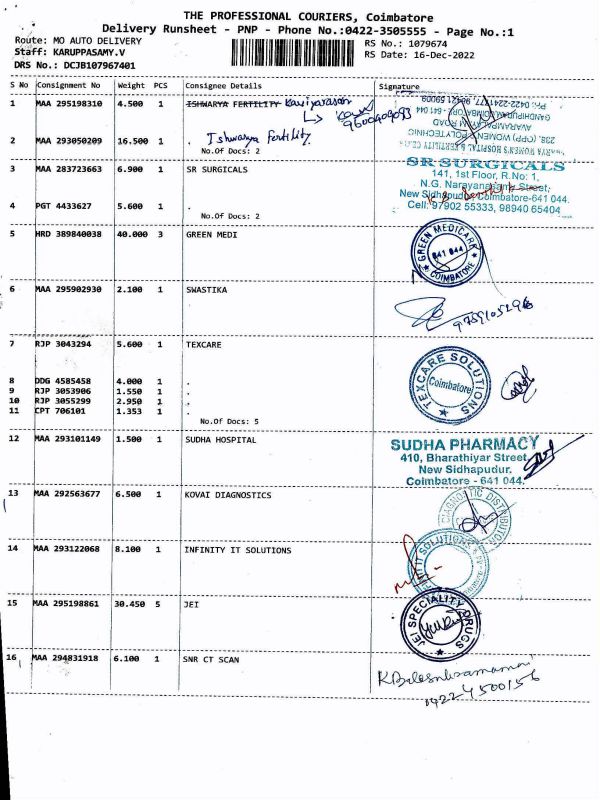 THE PROFESSIONAL COURIERS, Coimbatore
Delivery Runsheet - PNP - Phone No.:0422-3505555 - Page No.:1
Route: MO AUTO DELIVERY
RS No.: 1079674
Staff: KARUPPASAMY.V
RS Date: 16-Dec-2022
DRS No.: DCJB107967401
S No Consignment No Weight PCS Consignee Details Signature
1 MAA 295198310 4.500 1 ISHWARYA FERTILITY Kaviyarasan
9600409093
238, (OPP) WOMEN'S POLYTECHNIC
AVARAMPALAYAM ROAD
2 MAA 293050209 16.500 1 . Ishwarya fertility
No.Of Docs: 2
3 MAA 283723663 6.900 1 SR SURGICALS
SR SURGICALS
141, 1st Floor, R.No: 1,
N.G. Narayanasamy Street,
New Sidhapudur, Coimbatore-641 044.
Cell: 97902 55333, 98940 65404
4 PGT 4433627 5.600 1 .
No.Of Docs: 2
5 HRD 389840038 40.000 3 GREEN MEDI
GREEN MEDICARE
641 044
COIMBATORE
6 MAA 295902930 2.100 1 SWASTIKA
7 RJP 3043294 5.600 1 TEXCARE
TEXCARE SOLUTIONS
Coimbatore
8 DDG 4585458 4.000 1 .
9 RJP 3053906 1.550 1 .
10 RJP 3055299 2.950 1 .
11 CPT 706101 1.353 1 .
No.Of Docs: 5
12 MAA 293101149 1.500 1 SUDHA HOSPITAL
SUDHA PHARMACY
410, Bharathiyar Street,
New Sidhapudur.
Coimbatore - 641 044.
13 MAA 292563677 6.500 1 KOVAI DIAGNOSTICS
DIAGNOSTIC DISTRIBUTOR
14 MAA 293122068 8.100 1 INFINITY IT SOLUTIONS
15 MAA 295198861 30.450 5 JEI
JEI SPECIALITY DRUGS
16 MAA 294831918 6.100 1 SNR CT SCAN
0422 4500156